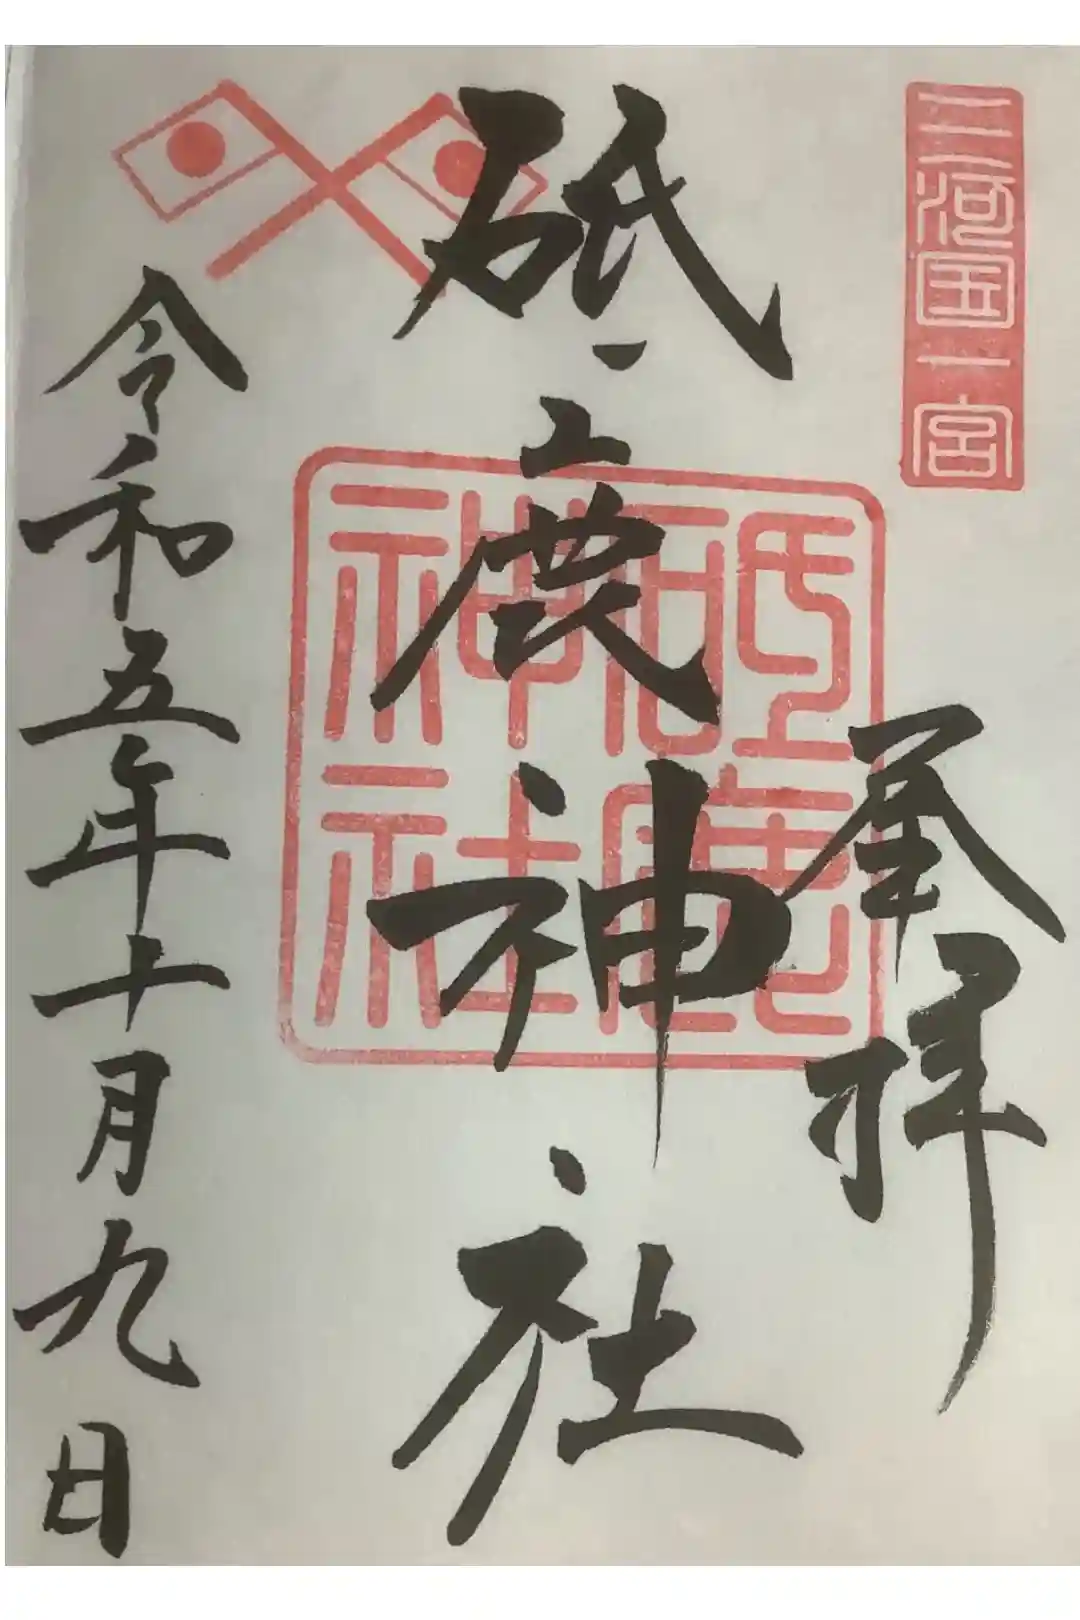 三河国一宮
奉拝
砥鹿神社
砥鹿
神社
令和五年十月九日